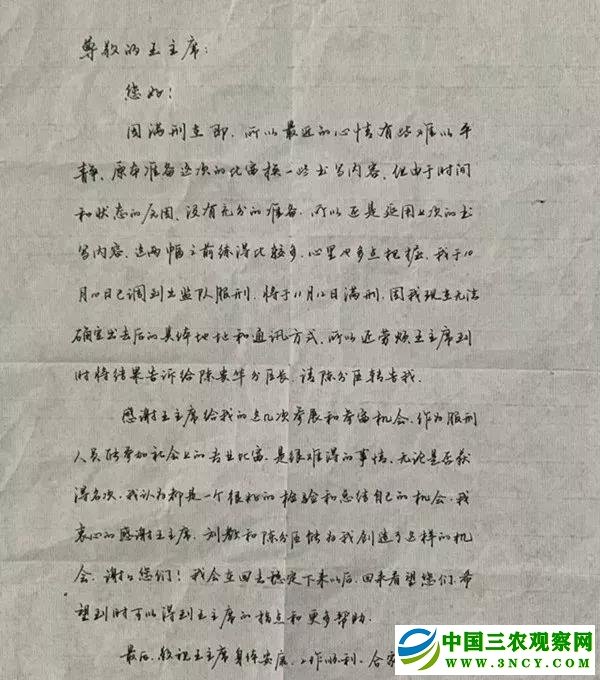 尊敬的王主席：
您好！
因满刑在即，所以最近的心情有些难以平
静，原本准备这次的比赛换一些书写内容，但由于时间
和状态的原因，没有充分的准备，所以还是延用上次的书
写内容，这两幅之前练得比较多，心里也多点把握，我于10
月10日已调到出监队服刑，将于11月12日满刑，因我现在无法
确定出去后的具体地址和通讯方式，所以还劳烦王主席到
时将结果告诉给陈安华分区长，请陈分区转告我。
感谢王主席给我的这几次参展和参赛机会，作为服刑
人员能参加社会上的专业比赛，是很难得的事情，无论是否获
得名次，我认为都是一个很好的检验和总结自己的机会，我
衷心的感谢王主席，刘教和陈分区能为我创造了这样的机
会，谢谢您们！我会在回去稳定下来以后，回来看望您们，希
望到时可以得到王主席的指点和更多帮助。
最后，敬祝王主席身体安康，工作顺利，合家
中国三农观察网
WWW.3NCY.COM